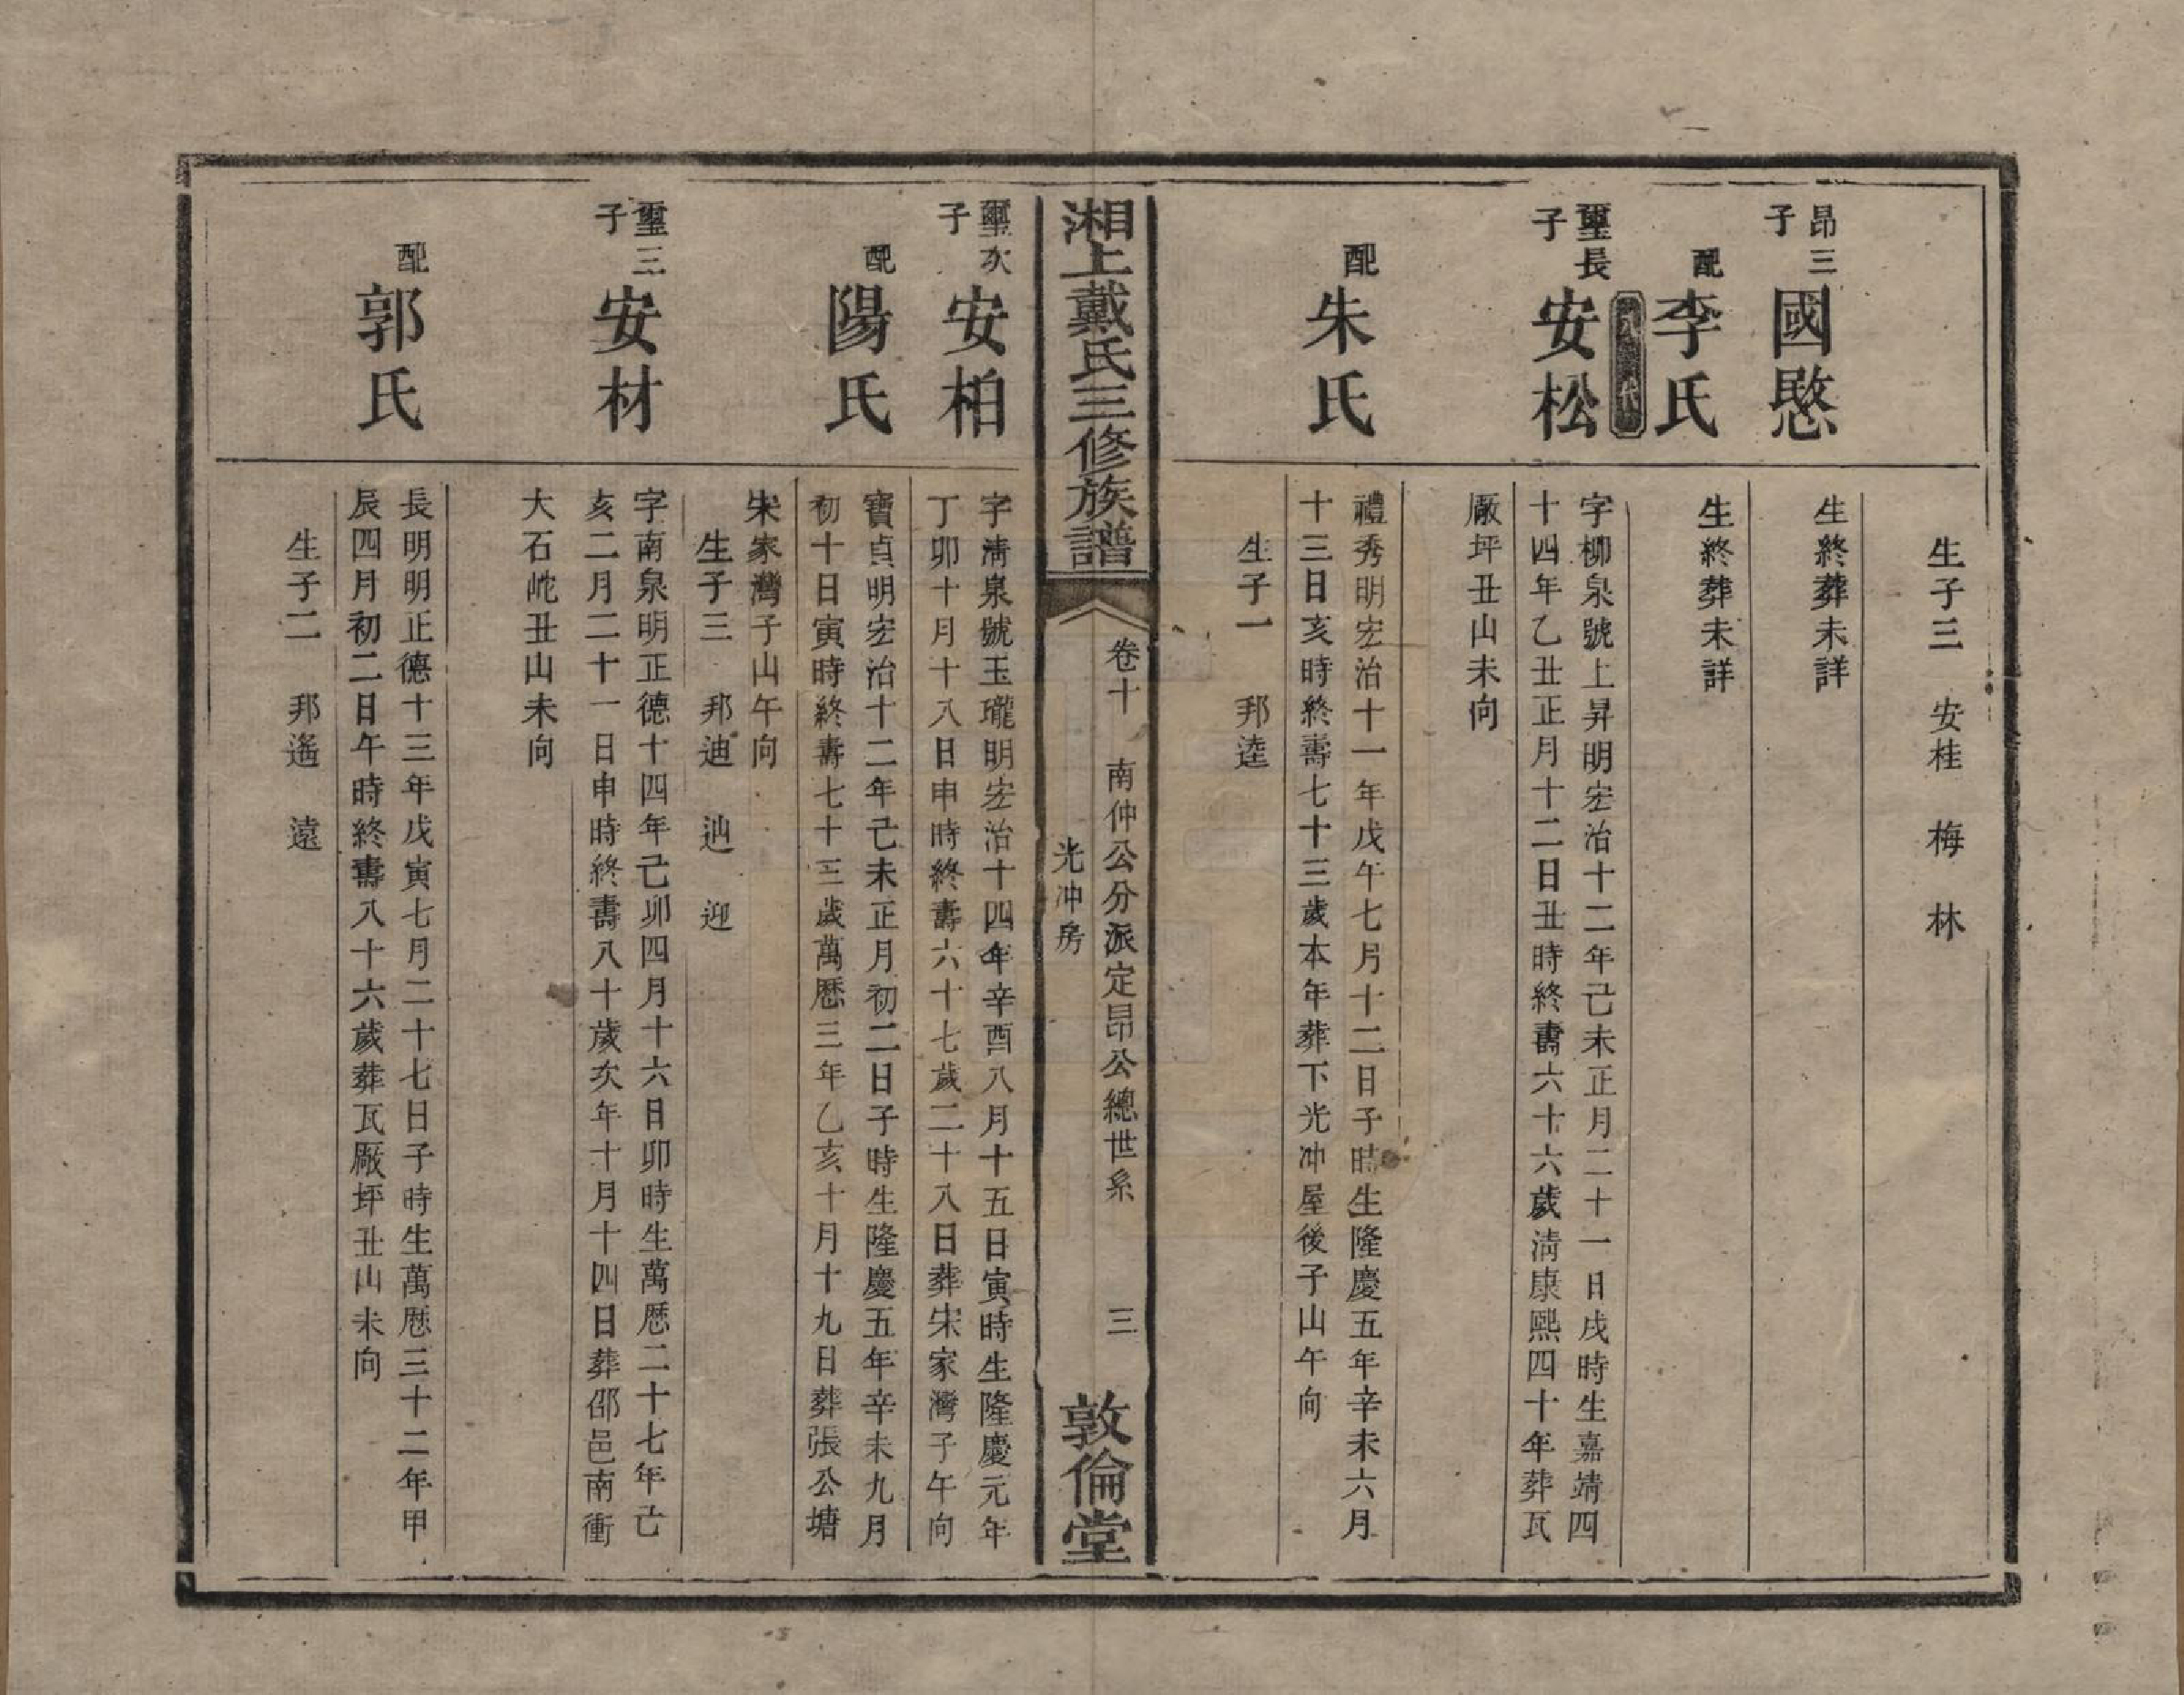 生子三 安桂 梅 林
昂三子 國愍 生終葬未詳
配 李氏 生終葬未詳
璽長子 安松 字柳泉號上昇明宏治十二年己未正月二十一日戌時生嘉靖四
十四年乙丑正月十二日丑時終壽六十六歲淸康熙四十年葬瓦
廠坪丑山未向
配 朱氏 禮秀明宏治十一年戊午七月十二日子時生隆慶五年辛未六月
十三日亥時終壽七十三歲本年葬下光冲屋後子山午向
生子一 邦逵
湘上戴氏三修族譜 卷十 南仲公分派定昂公總世系 三 敦倫堂
光冲房
璽次子 安柏 字淸泉號玉瓏明宏治十四年辛酉八月十五日寅時生隆慶元年
丁卯十月十八日申時終壽六十七歲二十八日葬宋家灣子午向
配 陽氏 寶貞明宏治十二年己未正月初二日子時生隆慶五年辛未九月
初十日寅時終壽七十三歲萬歷三年乙亥十月十九日葬張公塘
宋家灣子山午向
生子三 邦迪 迆 迎
璽三子 安材 字南泉明正德十四年己卯四月十六日卯時生萬歷二十七年己
亥二月二十一日申時終壽八十歲次年十月十四日葬邵邑南衝
大石屹丑山未向
配 郭氏 長明明正德十三年戊寅七月二十七日子時生萬歷三十二年甲
辰四月初二日午時終壽八十六歲葬瓦廠坪丑山未向
生子二 邦遙 遠